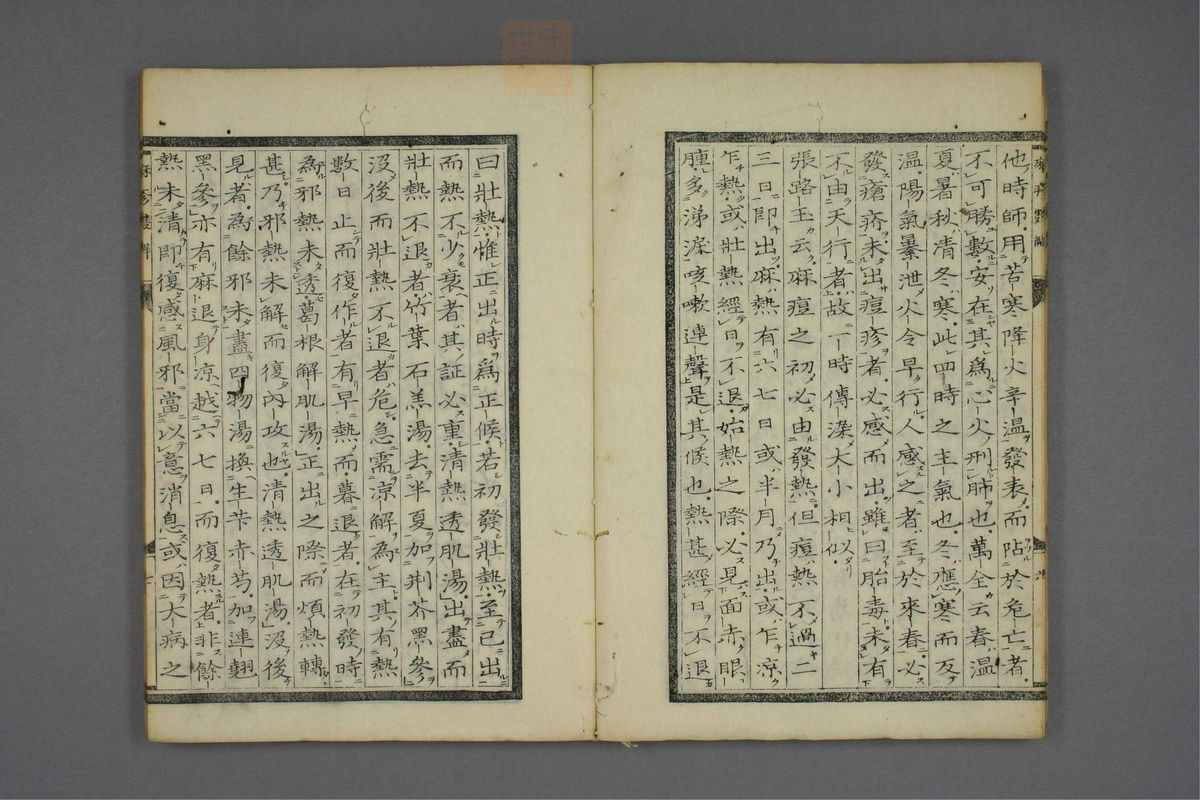 他時師用苦寒降火辛温發表而阽於危亡者
不可勝數安在其爲心火刑肺也萬全云春温
夏暑秋清冬寒此四時之主氣也冬應寒而反
温陽氣暴泄火令早行人感之者至於來春必
發瘡疥未出痘疹者必感而出雖曰胎毒未有
不由天行者故一時傳染大小相似
張路玉云麻痘之初必由發熱但痘熱不過二
三日即出麻熱有六七日或半月乃出或乍凉
乍熱或壯熱經日不退始熱之際必見面赤眼
腫多涕淚咳嗽連聲是其候也熱甚經日不退
曰壯熱惟正出時爲正候若初發壯熱至已出
而熱不少衰者其証必重清熱透肌湯出盡而
壯熱不退者竹葉石羔湯去半夏加荆芥黑參
没後而壯熱不退者危急需凉解為主其有熱
數日止而復作者有早熱而暮退者在初發時
為邪熱未透葛根解肌湯正出之際而煩熱轉
甚乃邪熱未解而復内攻也清熱透肌湯没後
見者為餘邪未盡四物湯換生芐赤芍加連翹
黑參亦有麻退身凉越六七日而復熱者非餘
熱未清即復感風邪當以意消息或因大病之